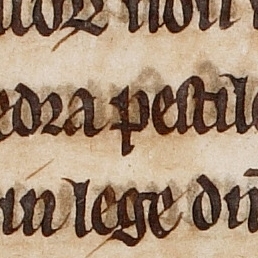 toꝝ non
edra pestile
in lege dn̄